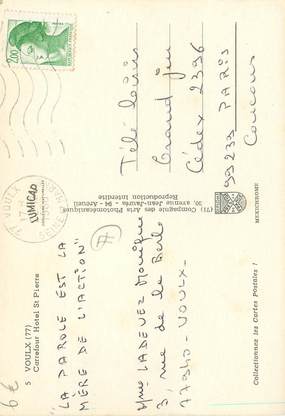 5 VOULX (77)
Carrefour Hotel St Pierre
"LA PAROLE EST LA
MÈRE DE L'ACTION"
Mme LADEVEZ Monique
3, rue de la
77940 - VOULX -
77
6 €
(77) Compagnie des Arts Photomécaniques
39, avenue Jean-Jaurès - 94 - Arcueil
Reproduction Interdite
LUMICAO
77 VOULX
SEINE ET MARNE
2,00
Télé loisirs
Grand Jeu
Cédex 2396
99233 PARIS
Concours
MEXICHROME
Collectionnez les Cartes Postales !